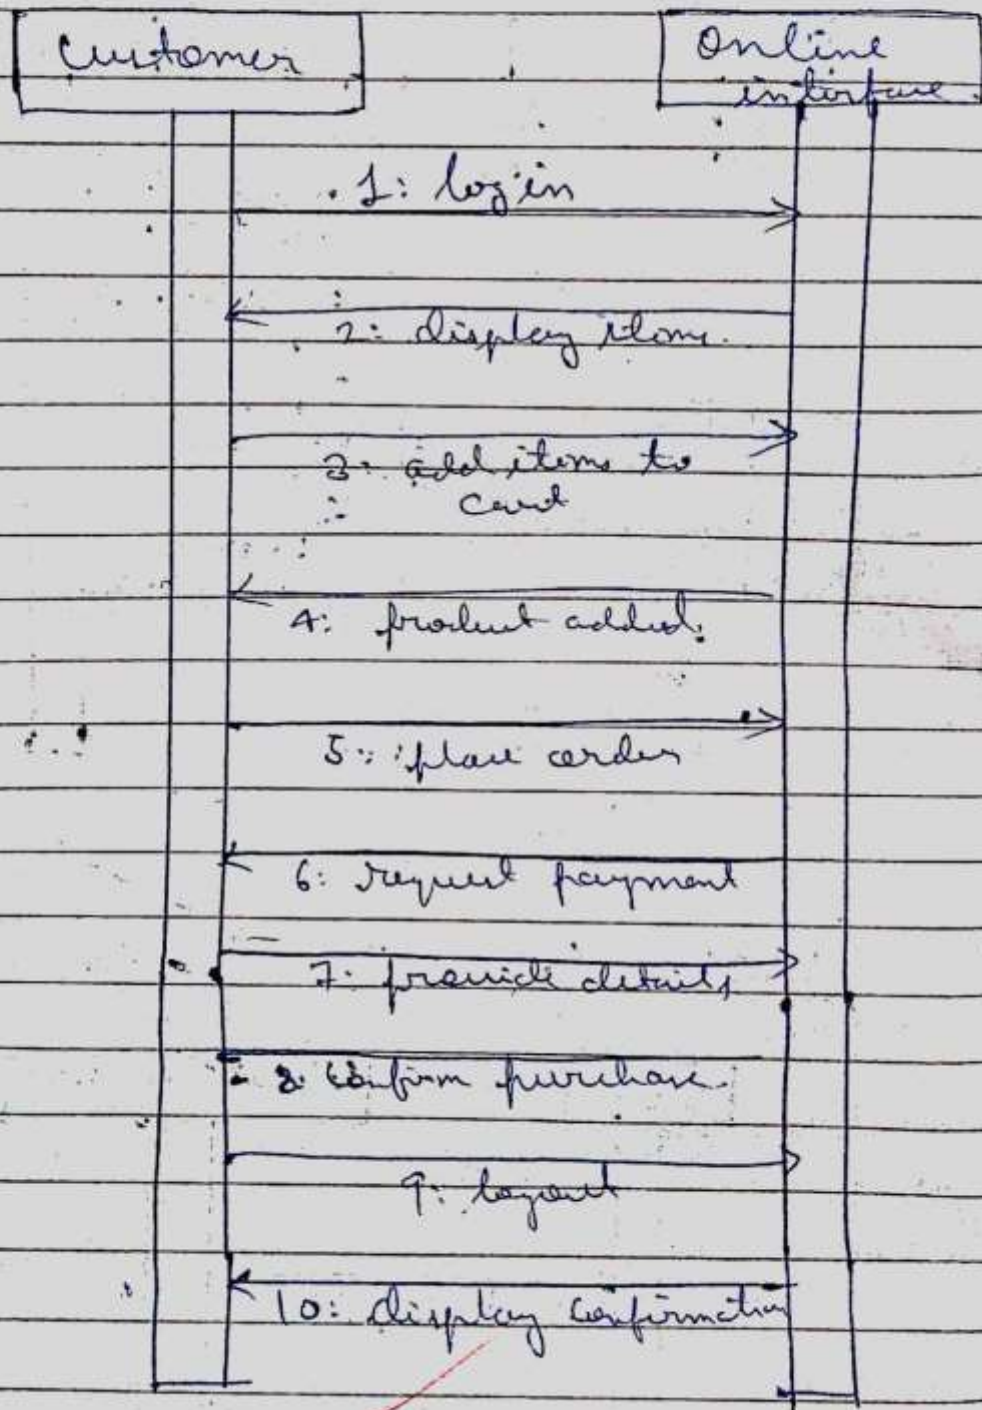 Customer
Online
interface
1: log in
2: display items.
3: add items to
Card
4: product added.
5: place order
6: request payment
7: provide details
8: Confirm purchase.
9: logout
10: display confirmation